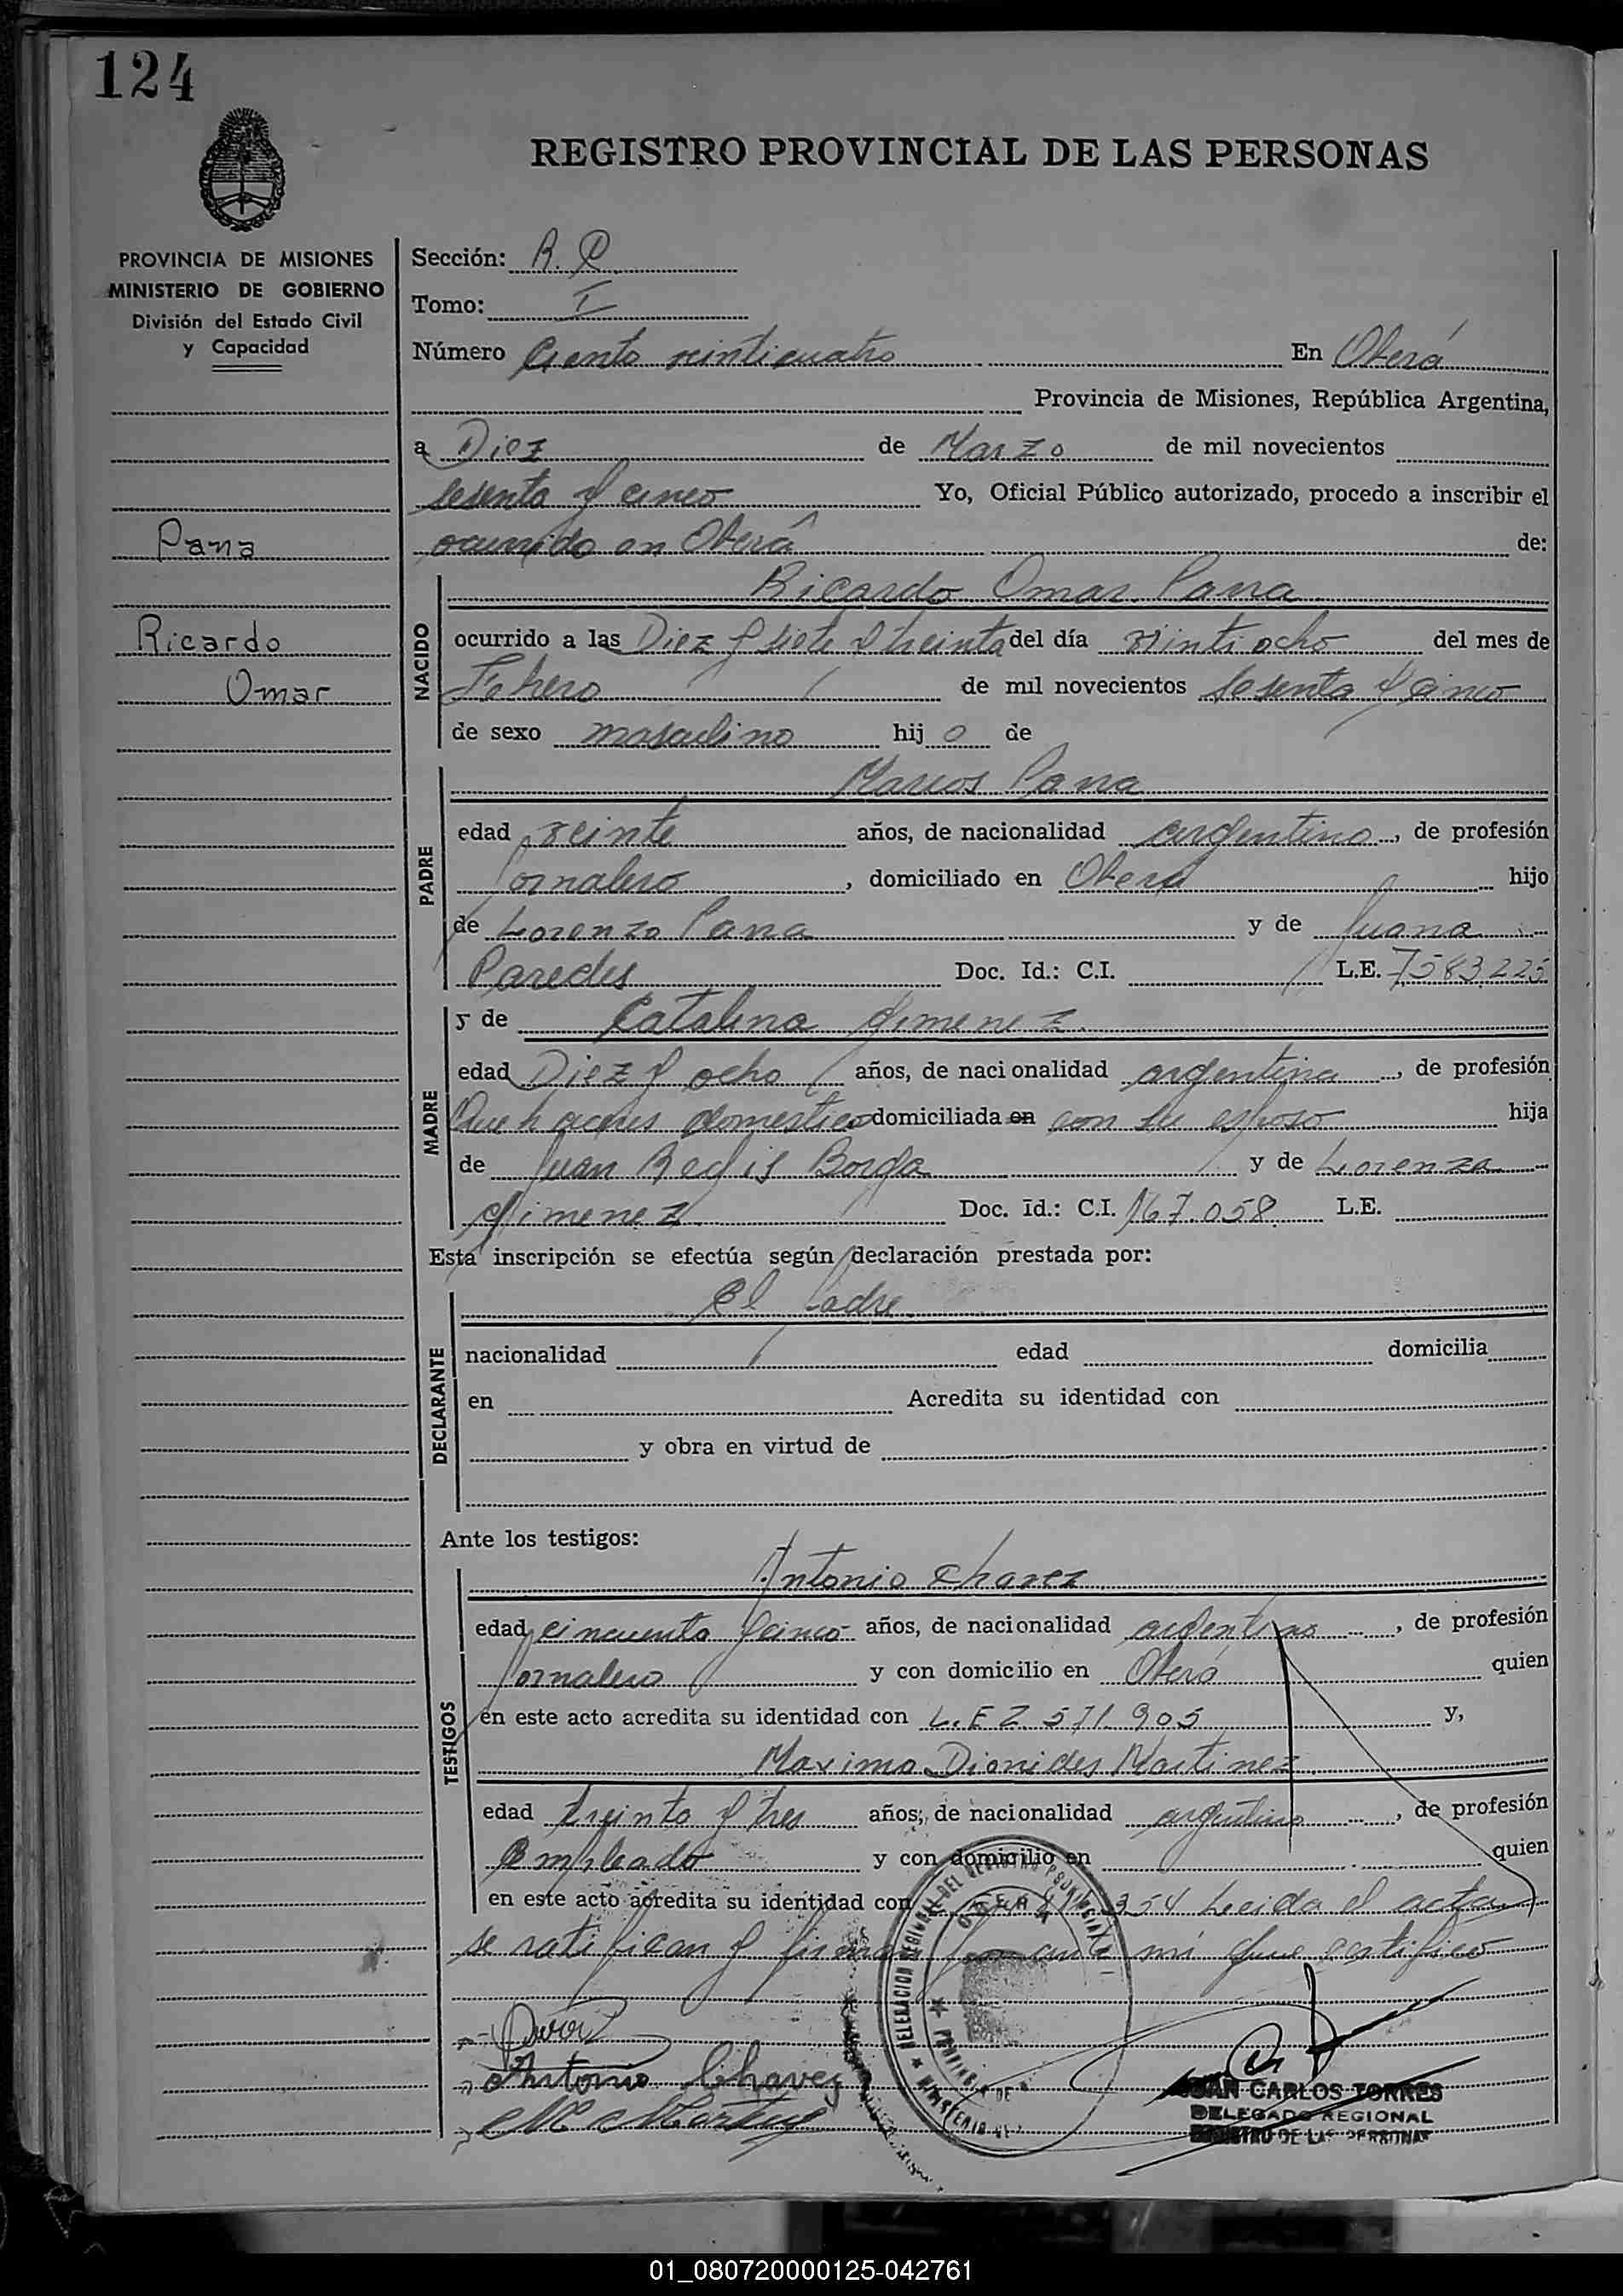 124
REGISTRO PROVINCIAL DE LAS PERSONAS
PROVINCIA DE MISIONES
MINISTERIO DE GOBIERNO
División del Estado Civil
y Capacidad
Pana
Ricardo
Omar
Sección: R. P.
Tomo: I
Número Ciento veinticuatro En Oberá
Provincia de Misiones, República Argentina,
a Diez de Marzo de mil novecientos
sesenta y cinco Yo, Oficial Público autorizado, procedo a inscribir el
ocurrido en Oberá de:
NACIDO
Ricardo Omar Pana
ocurrido a las Diez y siete y treinta del día veinti ocho del mes de
Febrero de mil novecientos sesenta y cinco
de sexo masculino hijo de
PADRE
Marcos Pana
edad veinte años, de nacionalidad argentino, de profesión
Jornalero, domiciliado en Oberá hijo
de Lorenzo Pana y de Juana
Paredes Doc. Id.: C.I. L.E. 7.583.225
MADRE
y de Catalina Gimenez
edad Diez y ocho años, de nacionalidad argentina, de profesión
Quehaceres domesticos domiciliada en con su esposo hija
de Juan Regis Borga y de Lorenza
Gimenez Doc. Id.: C.I. 167.058 L.E.
Esta inscripción se efectúa según declaración prestada por:
DECLARANTE
El Padre
nacionalidad edad domicilia
en Acredita su identidad con
y obra en virtud de
Ante los testigos:
TESTIGOS
Antonio Chavez
edad cincuenta y cinco años, de nacionalidad argentino, de profesión
Jornalero y con domicilio en Oberá quien
en este acto acredita su identidad con L.E 2.571.905 y,
Maximo Dionides Martinez
edad treinta y tres años; de nacionalidad argentino, de profesión
Empleado y con domicilio en quien
en este acto acredita su identidad con 354 Leida el acta
se ratifican y firman por ante mi que certifico
Antonio Chavez
JUAN CARLOS TORRES
DELEGADO REGIONAL
REGISTRO DE LAS PERSONAS
01_080720000125-042761